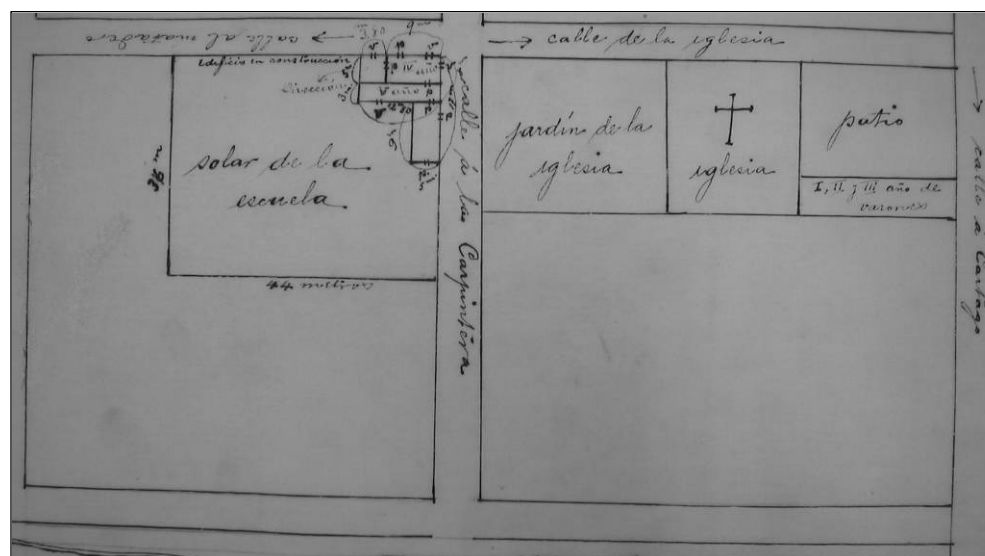 calle al matadero
calle de la iglesia
Edificio en construcción
Dirección
IV año
año
solar de la
escuela
38 m
44 m
calle á las Carpintéra
jardín de la
iglesia
iglesia
patio
I, II y III año de
varones
calle a Cartago